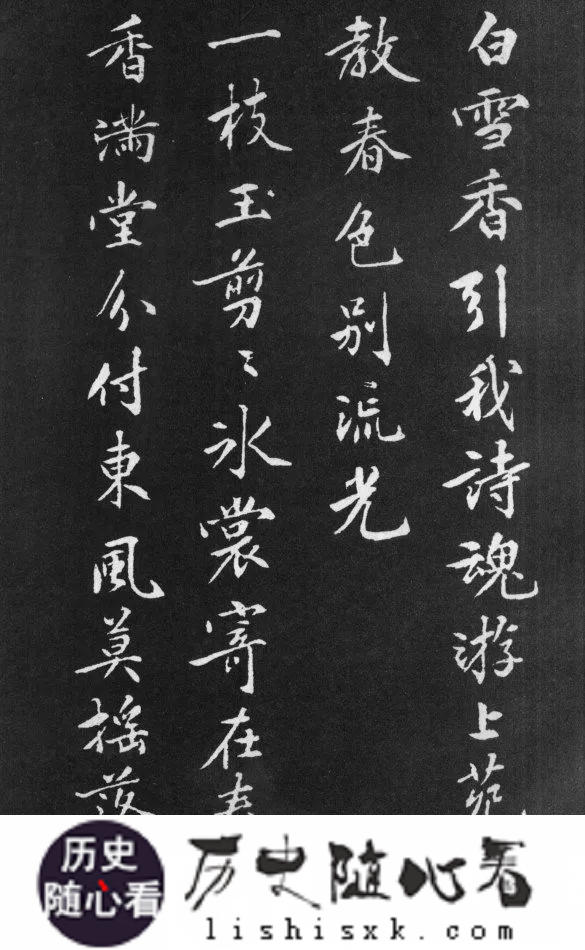 白雪香引我詩魂游上苑
教春色別流光
一枝玉剪〻氷裳寄在春
香满堂分付東風莫摇落
历史
随心看
历史随心看
lishisxk.com